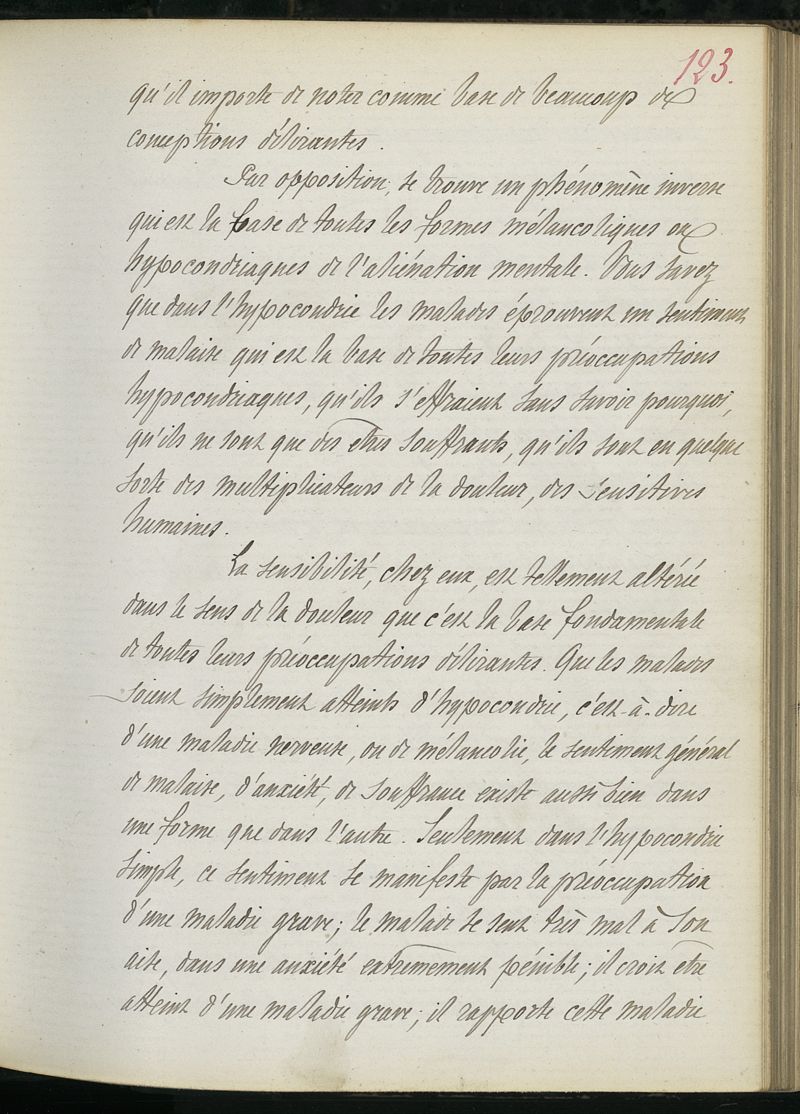 123.
qu'il importe de noter comme base de beaucoup de
conceptions délirantes.
Par opposition, se trouve un phénomène inverse
qui est la base de toutes les formes mélancoliques ou
hypocondriaques de l'aliénation mentale. Vous savez
que dans l'hypocondrie les malades éprouvent un sentiment
de malaise qui est la base de toutes leurs préoccupations
hypocondriaques, qu'ils s'effraient sans savoir pourquoi,
qu'ils ne sont que des êtres souffrants, qu'ils sont en quelque
sorte des multiplicateurs de la douleur, des sensitives
humaines.
La sensibilité, chez eux, est tellement altérée
dans le sens de la douleur que c'est la base fondamentale
de toutes leurs préoccupations délirantes. Que les malades
soient simplement atteints d'hypocondrie, c'est-à-dire
d'une maladie nerveuse, ou de mélancolie, le sentiment général
de malaise, d'anxiété, de souffrance existe aussi bien dans
une forme que dans l'autre. Seulement dans l'hypocondrie
simple, ce sentiment se manifeste par la préoccupation
d'une maladie grave; le malade se sent très mal à son
aise, dans une anxiété extrêmement pénible; il croit être
atteint d'une maladie grave; il rapporte cette maladie